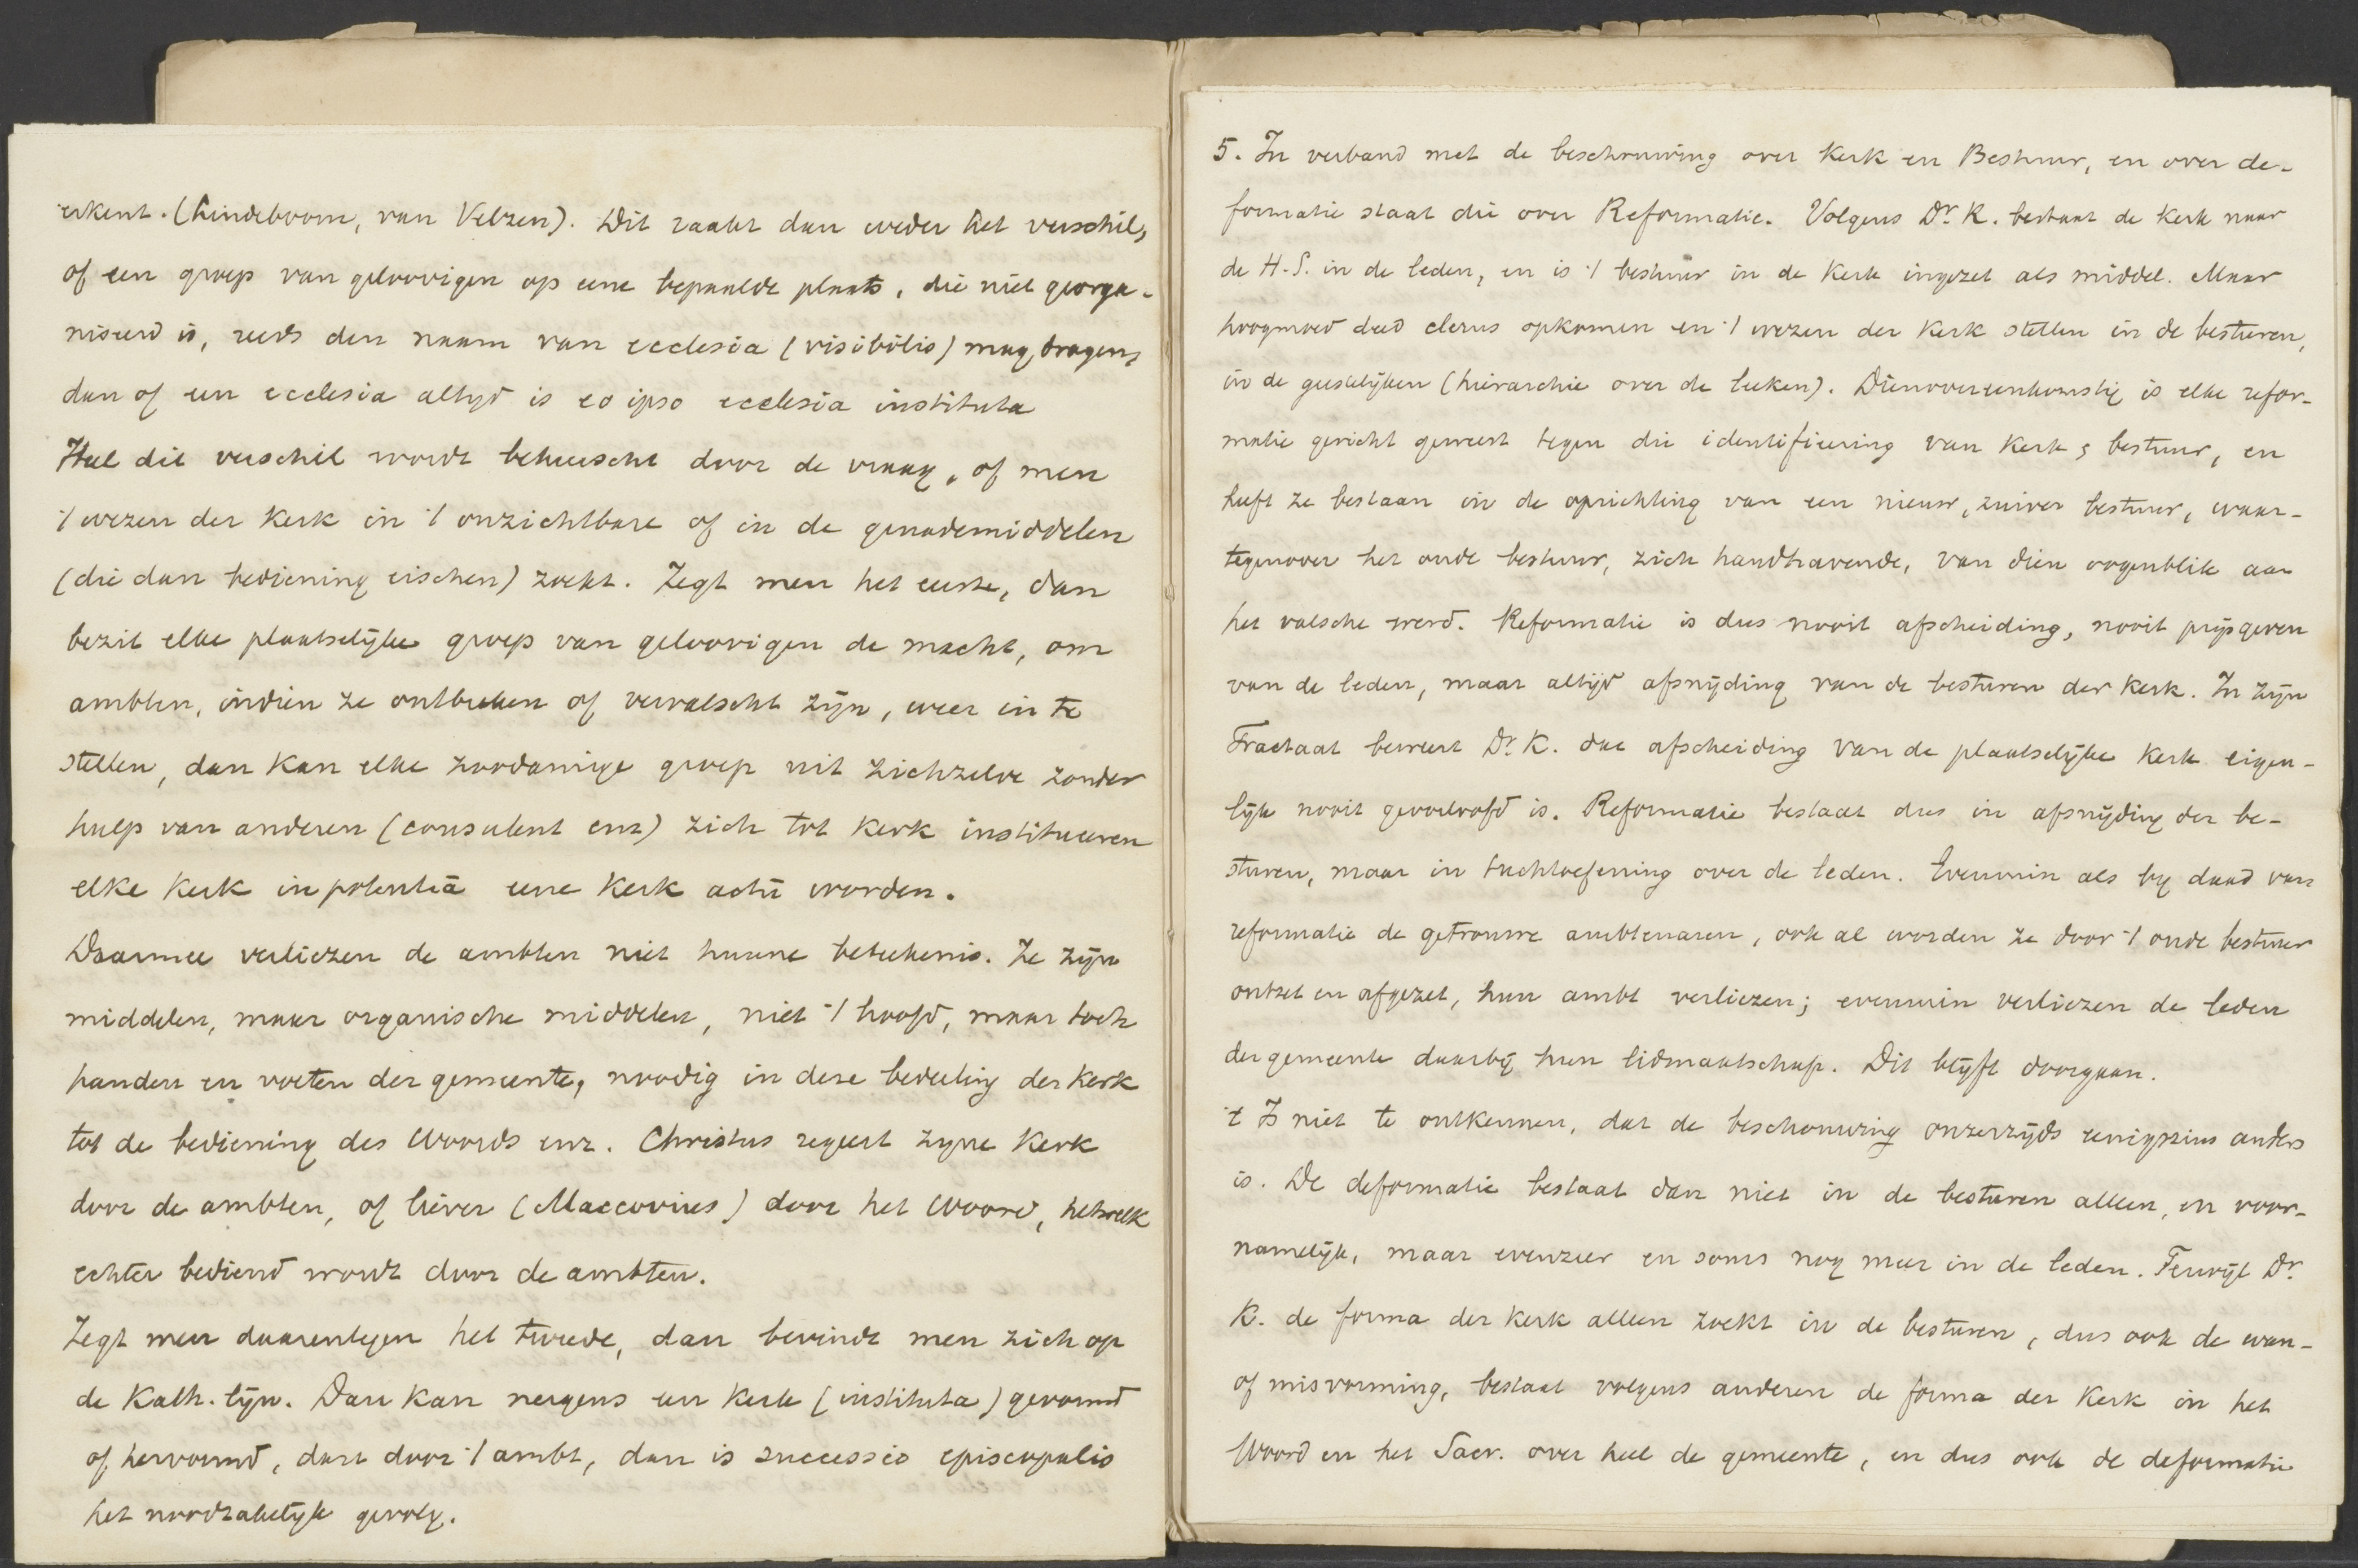 erkent. (Lindeboom, van Velzen). Dit raakt dan weder het verschil,
of een groep van geloovigen op eene bepaalde plaats, die niet georga-
niseerd is, reeds den naam van ecclesia (visibilis) mag dragen,
dan of een ecclesia altijd is eo ipso ecclesia instituta
Heel dit verschil wordt beheerscht door de vraag, of men
't wezen der Kerk in 't onzichtbare of in de genademiddelen
(die dan bediening eischen) zoekt. Zegt men het eerste, dan
bezit elke plaatselijke groep van geloovigen de macht, om
ambten, indien ze ontbreken of vervalscht zijn, weer in te
stellen, dan kan elke zoodanige groep uit zichzelve zonder
hulp van anderen (consulent enz) zich tot Kerk institueeren
elke Kerk in potentiā eene Kerk actū worden.
Daarmee verliezen de ambten niet hunne beteekenis. Ze zijn
middelen, maar organische middelen, niet 't hoofd, maar toch
handen en voeten der gemeente, noodig in deze bedeeling der Kerk
tot de bediening des Woords enz. Christus regeert zijne Kerk
door de ambten, of liever (Maccovius) door het Woord, hetwelk
echter bediend wordt door de ambten.
Zegt men daarentegen het tweede, dan bevindt men zich op
de Kath. lijn. Dan kan nergens een Kerk (instituta) gevormd
of hervormd, dan door 't ambt, dan is successio episcopalis
het noodzakelijk gevolg.
5. In verband met de beschouwing over Kerk en Bestuur, en over de-
formatie staat die over Reformatie. Volgens Dr. K. bestaat de Kerk naar
de H.S. in de leden, en is 't bestuur in de Kerk ingezet als middel. Maar
hoogmoed deed clerus opkomen en 't wezen der Kerk stellen in de besturen,
in de geestelijken (hierarchie over de leeken). Dienovereenkomstig is elke refor-
matie gericht geweest tegen die identificeering van Kerk & bestuur, en
heeft ze bestaan in de oprichting van een nieuw, zuiver bestuur, waar-
tegenover het oude bestuur, zich handhavende, van dien oogenblik aan
het valsche werd. Reformatie is dus nooit afscheiding, nooit prijsgeven
van de leden, maar altijd afsnijding van de besturen der Kerk. In zijn
Tractaat beweert Dr. K. dat afscheiding van de plaatselijke Kerk eigen-
lijk nooit geoorloofd is. Reformatie bestaat dus in afsnijding der be-
sturen, maar in tuchtoefening over de leden. Evenmin als bij daad van
reformatie de getrouwe ambtenaren, ook al worden ze door 't oude bestuur
ontzet en afgezet, hun ambt verliezen; evenmin verliezen de leden
der gemeente daarbij hun lidmaatschap. Dit blijft doorgaan.
't Is niet te ontkennen, dat de beschouwing onzerzijds eenigszins anders
is. De deformatie bestaat dan niet in de besturen alleen, en voor-
namelijk, maar evenzeer en soms nog meer in de leden. Terwijl Dr.
K. de forma der Kerk alleen zoekt in de besturen, dus ook de wan-
of misvorming, bestaat volgens anderen de forma der Kerk in het
Woord en het Sacr. over heel de gemeente, en dus ook de deformatie